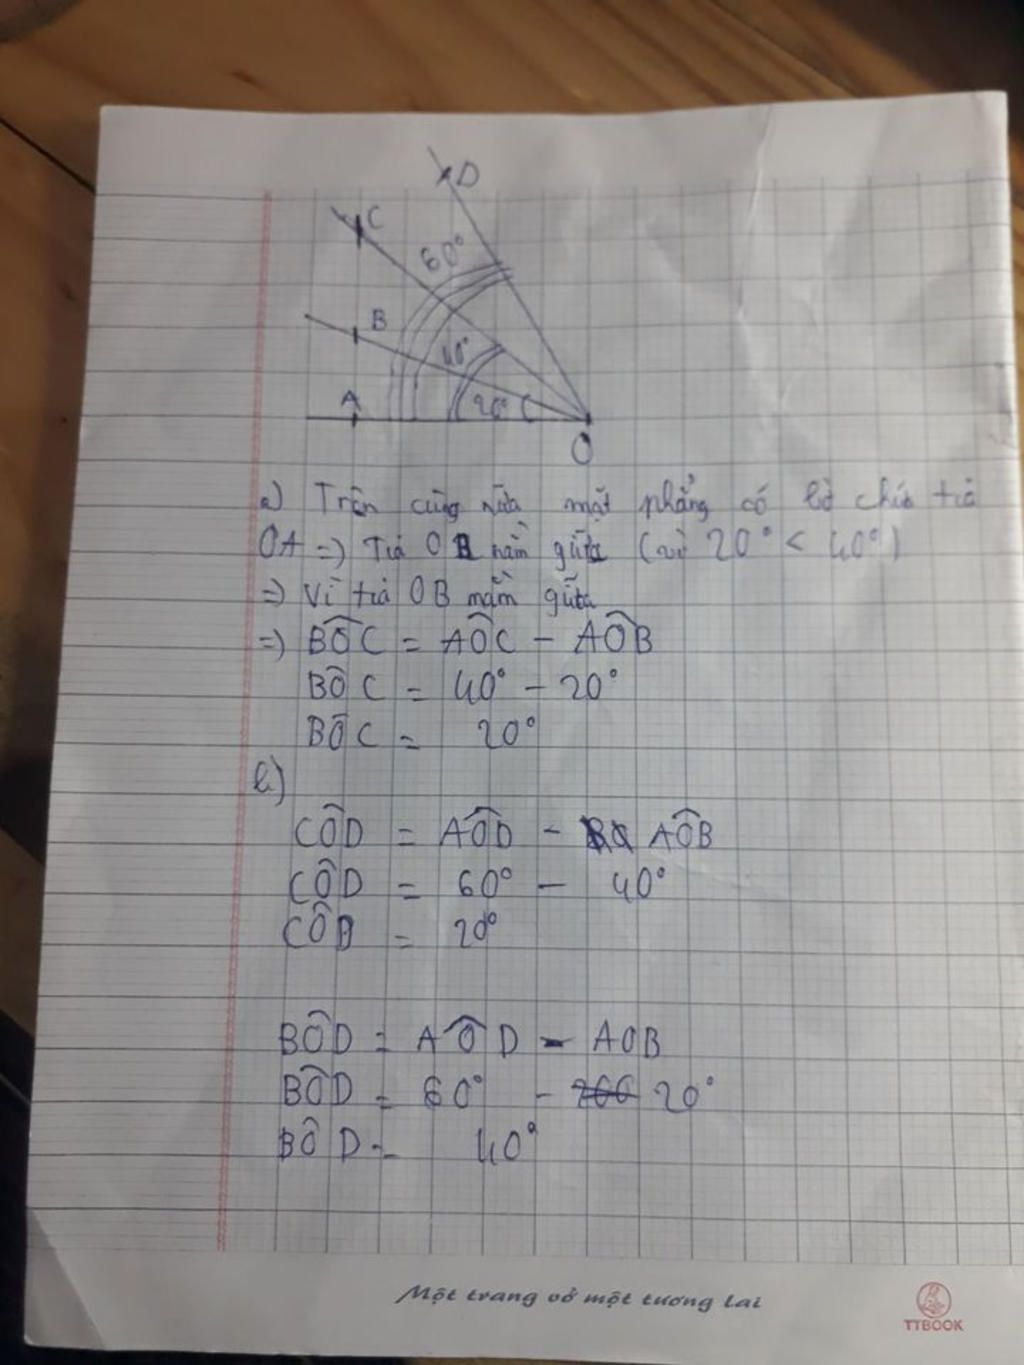 D
C
60°
B
40°
A
20°
O
a) Trên cùng nửa mặt phẳng có bờ chứa tia
OA => Tia OB nằm giữa (vì 20° < 40°)
=> Vì tia OB nằm giữa
=> BÔC = AÔC - AÔB
BÔC = 40° - 20°
BÔC = 20°
b)
CÔD = AÔD - AÔB
CÔD = 60° - 40°
CÔD = 20°
BÔD = AÔD - AOB
BÔD = 60° - 20°
BÔD = 40°
Một trang vở một tương lai
TTBOOK